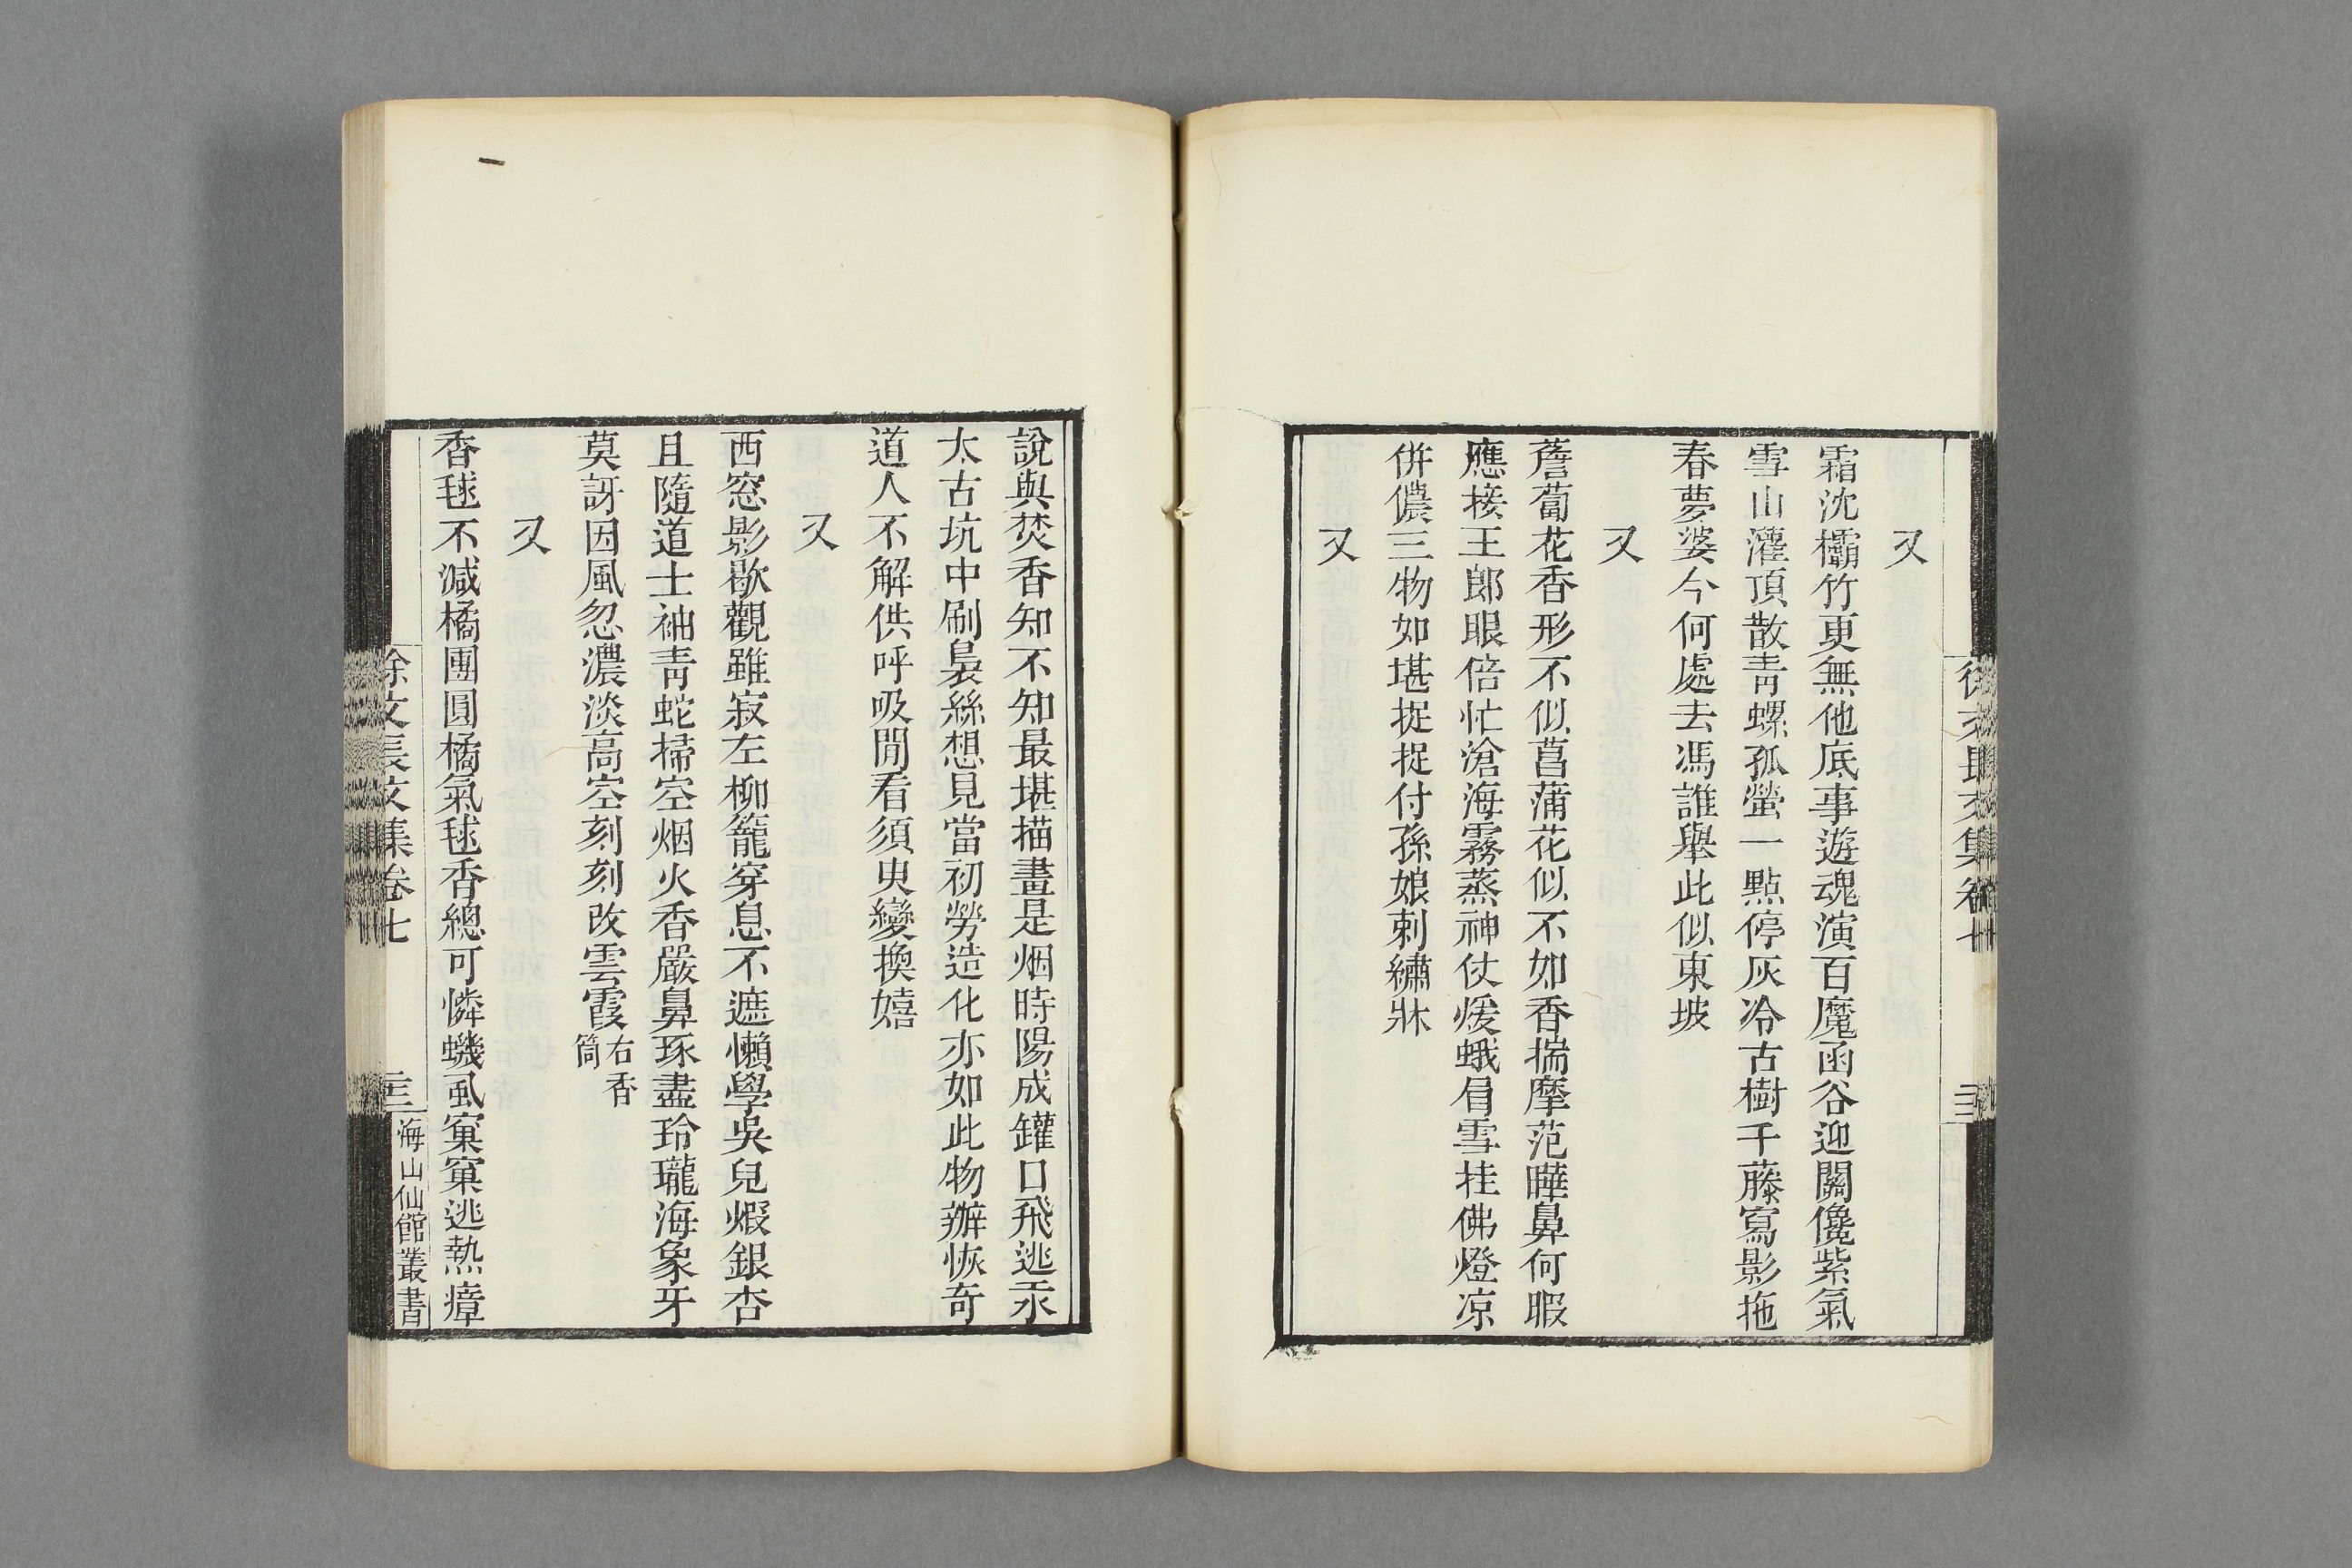 又
霜沈𣟴竹更無他底事遊魂演百魔函谷迎關儳紫氣
雪山灌頂散青螺孤螢一點停灰冷古樹千藤寫影拖
春夢婆今何處去馮誰舉此似東坡
又
薝蔔花香形不似菖蒲花似不如香揣摩范曄鼻何暇
應接王郎眼倍忙滄海霧蒸神仗煖蛾眉雪挂佛燈凉
併儂三物如堪捉捉付孫娘刺繡牀
又
說與焚香知不知最堪描畫是烟時陽成罐口飛逃汞
太古坑中刷裊絲想見當初勞造化亦如此物辦恢奇
道人不解供呼吸閒看須臾變換嬉
又
西窓影歇觀雖寂左柳籠穿息不遮懶學吳兒煆銀杏
且隨道士袖青蛇掃空烟火香嚴鼻琢盡玲瓏海象牙
莫訝因風忽濃淡高空刻刻改雲霞右香筒
又
香毬不減橘團圓橘氣毬香總可憐蟣虱窠窠逃熱瘴
徐文長文集卷七
海山仙館叢書